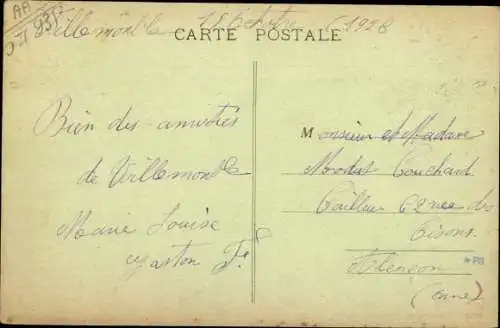 Villemomble 1 Octobre 1928
CARTE POSTALE
Bien des amitiés
de Villemomble
Marie Louise
Gaston
Monsieur et Madame
Couchard
Tailleur rue des
Tisons
Alençon
(Orne)